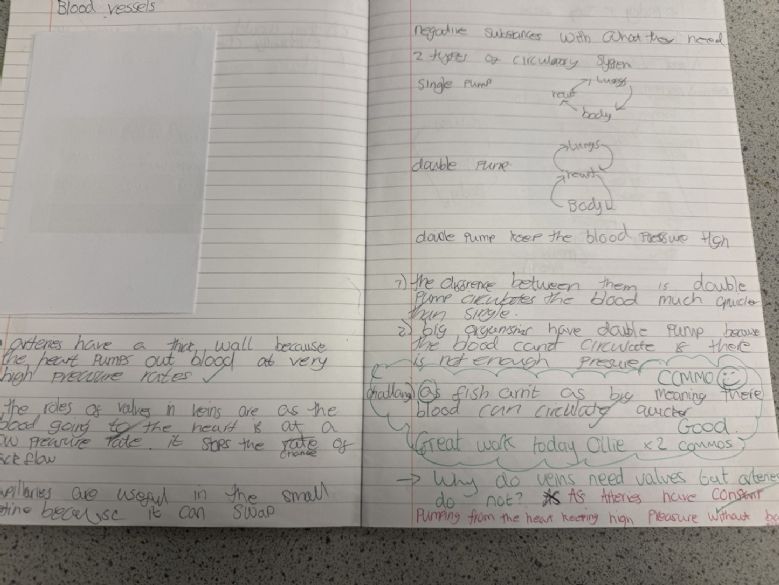 Blood vessels
arteries have a thick wall because
the heart pumps out blood at very
high pressure rates ✓
the roles of valves in veins are as the
blood going to the heart is at a
low pressure rate. it stops the rate of
chance
back flow
capillaries are useful in the small
because it can swap
negative substances with what they need
2 types of circulatory system
single pump
lungs
heart
body
double pump
lungs
heart
Body
double pump keep the blood pressure high
1) the difference between them is double
pump circulates the blood much quicker
than single.
2) big organisms have double pump because
the blood cannt circulate if there
is not enough pressure
COMMO
challange) as fish arn't as big meaning there
blood can circulate quicker
Good.
Great work today Ollie x2 commos
→ Why do veins need valves but arteries
do not? As Arteries have constant
Pumping from the heart keeping high pleasure without